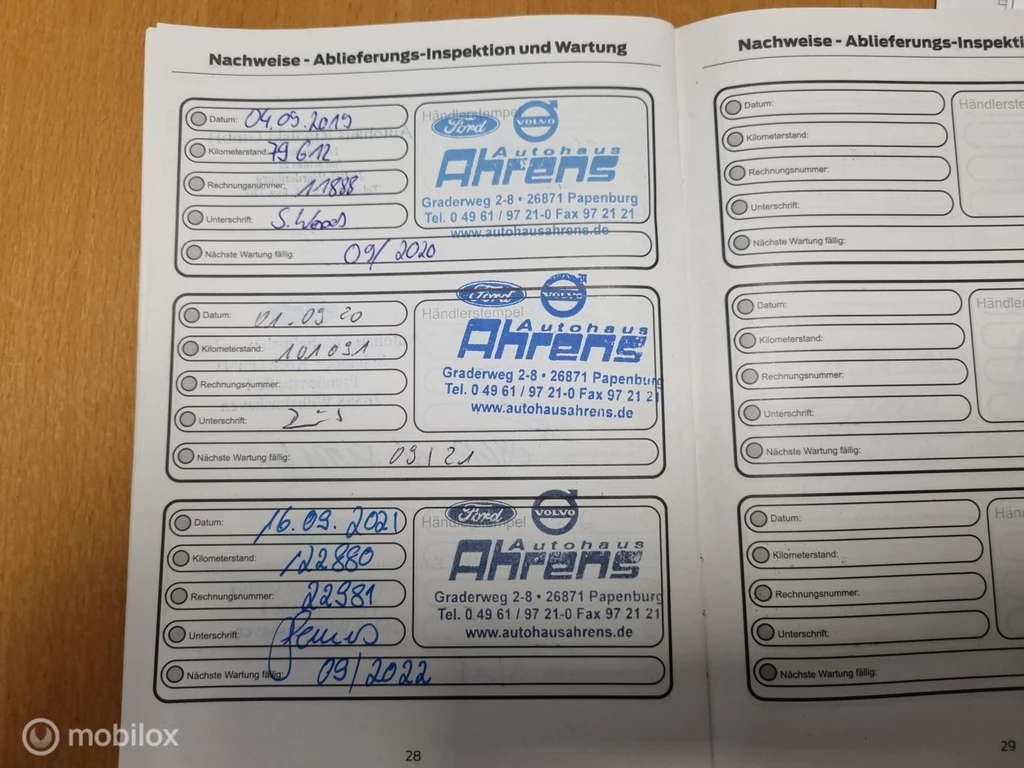 Nachweise - Ablieferungs-Inspektion und Wartung
Datum: 04.09.2019
Kilometerstand: 79612
Rechnungsnummer: 11888
Unterschrift:
Nächste Wartung fällig: 09/2020
Händlerstempel
Ford VOLVO
Autohaus
Ahrens
Graderweg 2-8 • 26871 Papenburg
Tel. 0 49 61 / 97 21-0 Fax 97 21 21
www.autohausahrens.de
Datum: 01.09 20
Kilometerstand: 101091
Rechnungsnummer:
Unterschrift:
Nächste Wartung fällig: 09/21
Ford VOLVO
Händlerstempel
Autohaus
Ahrens
Graderweg 2-8 • 26871 Papenburg
Tel. 0 49 61 / 97 21-0 Fax 97 21 21
www.autohausahrens.de
Datum: 16.09.2021
Kilometerstand: 122880
Rechnungsnummer: 22981
Unterschrift:
Nächste Wartung fällig: 09/2022
Ford VOLVO
Händlerstempel
Autohaus
Ahrens
Graderweg 2-8 • 26871 Papenburg
Tel. 0 49 61 / 97 21-0 Fax 97 21 21
www.autohausahrens.de
28
Nachweise - Ablieferungs-Inspekti
Datum:
Kilometerstand:
Rechnungsnummer:
Unterschrift:
Nächste Wartung fällig:
Händlerste
Datum:
Kilometerstand:
Rechnungsnummer:
Unterschrift:
Nächste Wartung fällig:
Händler
Datum:
Kilometerstand:
Rechnungsnummer:
Unterschrift:
Nächste Wartung fällig:
Hän
29
mobilox